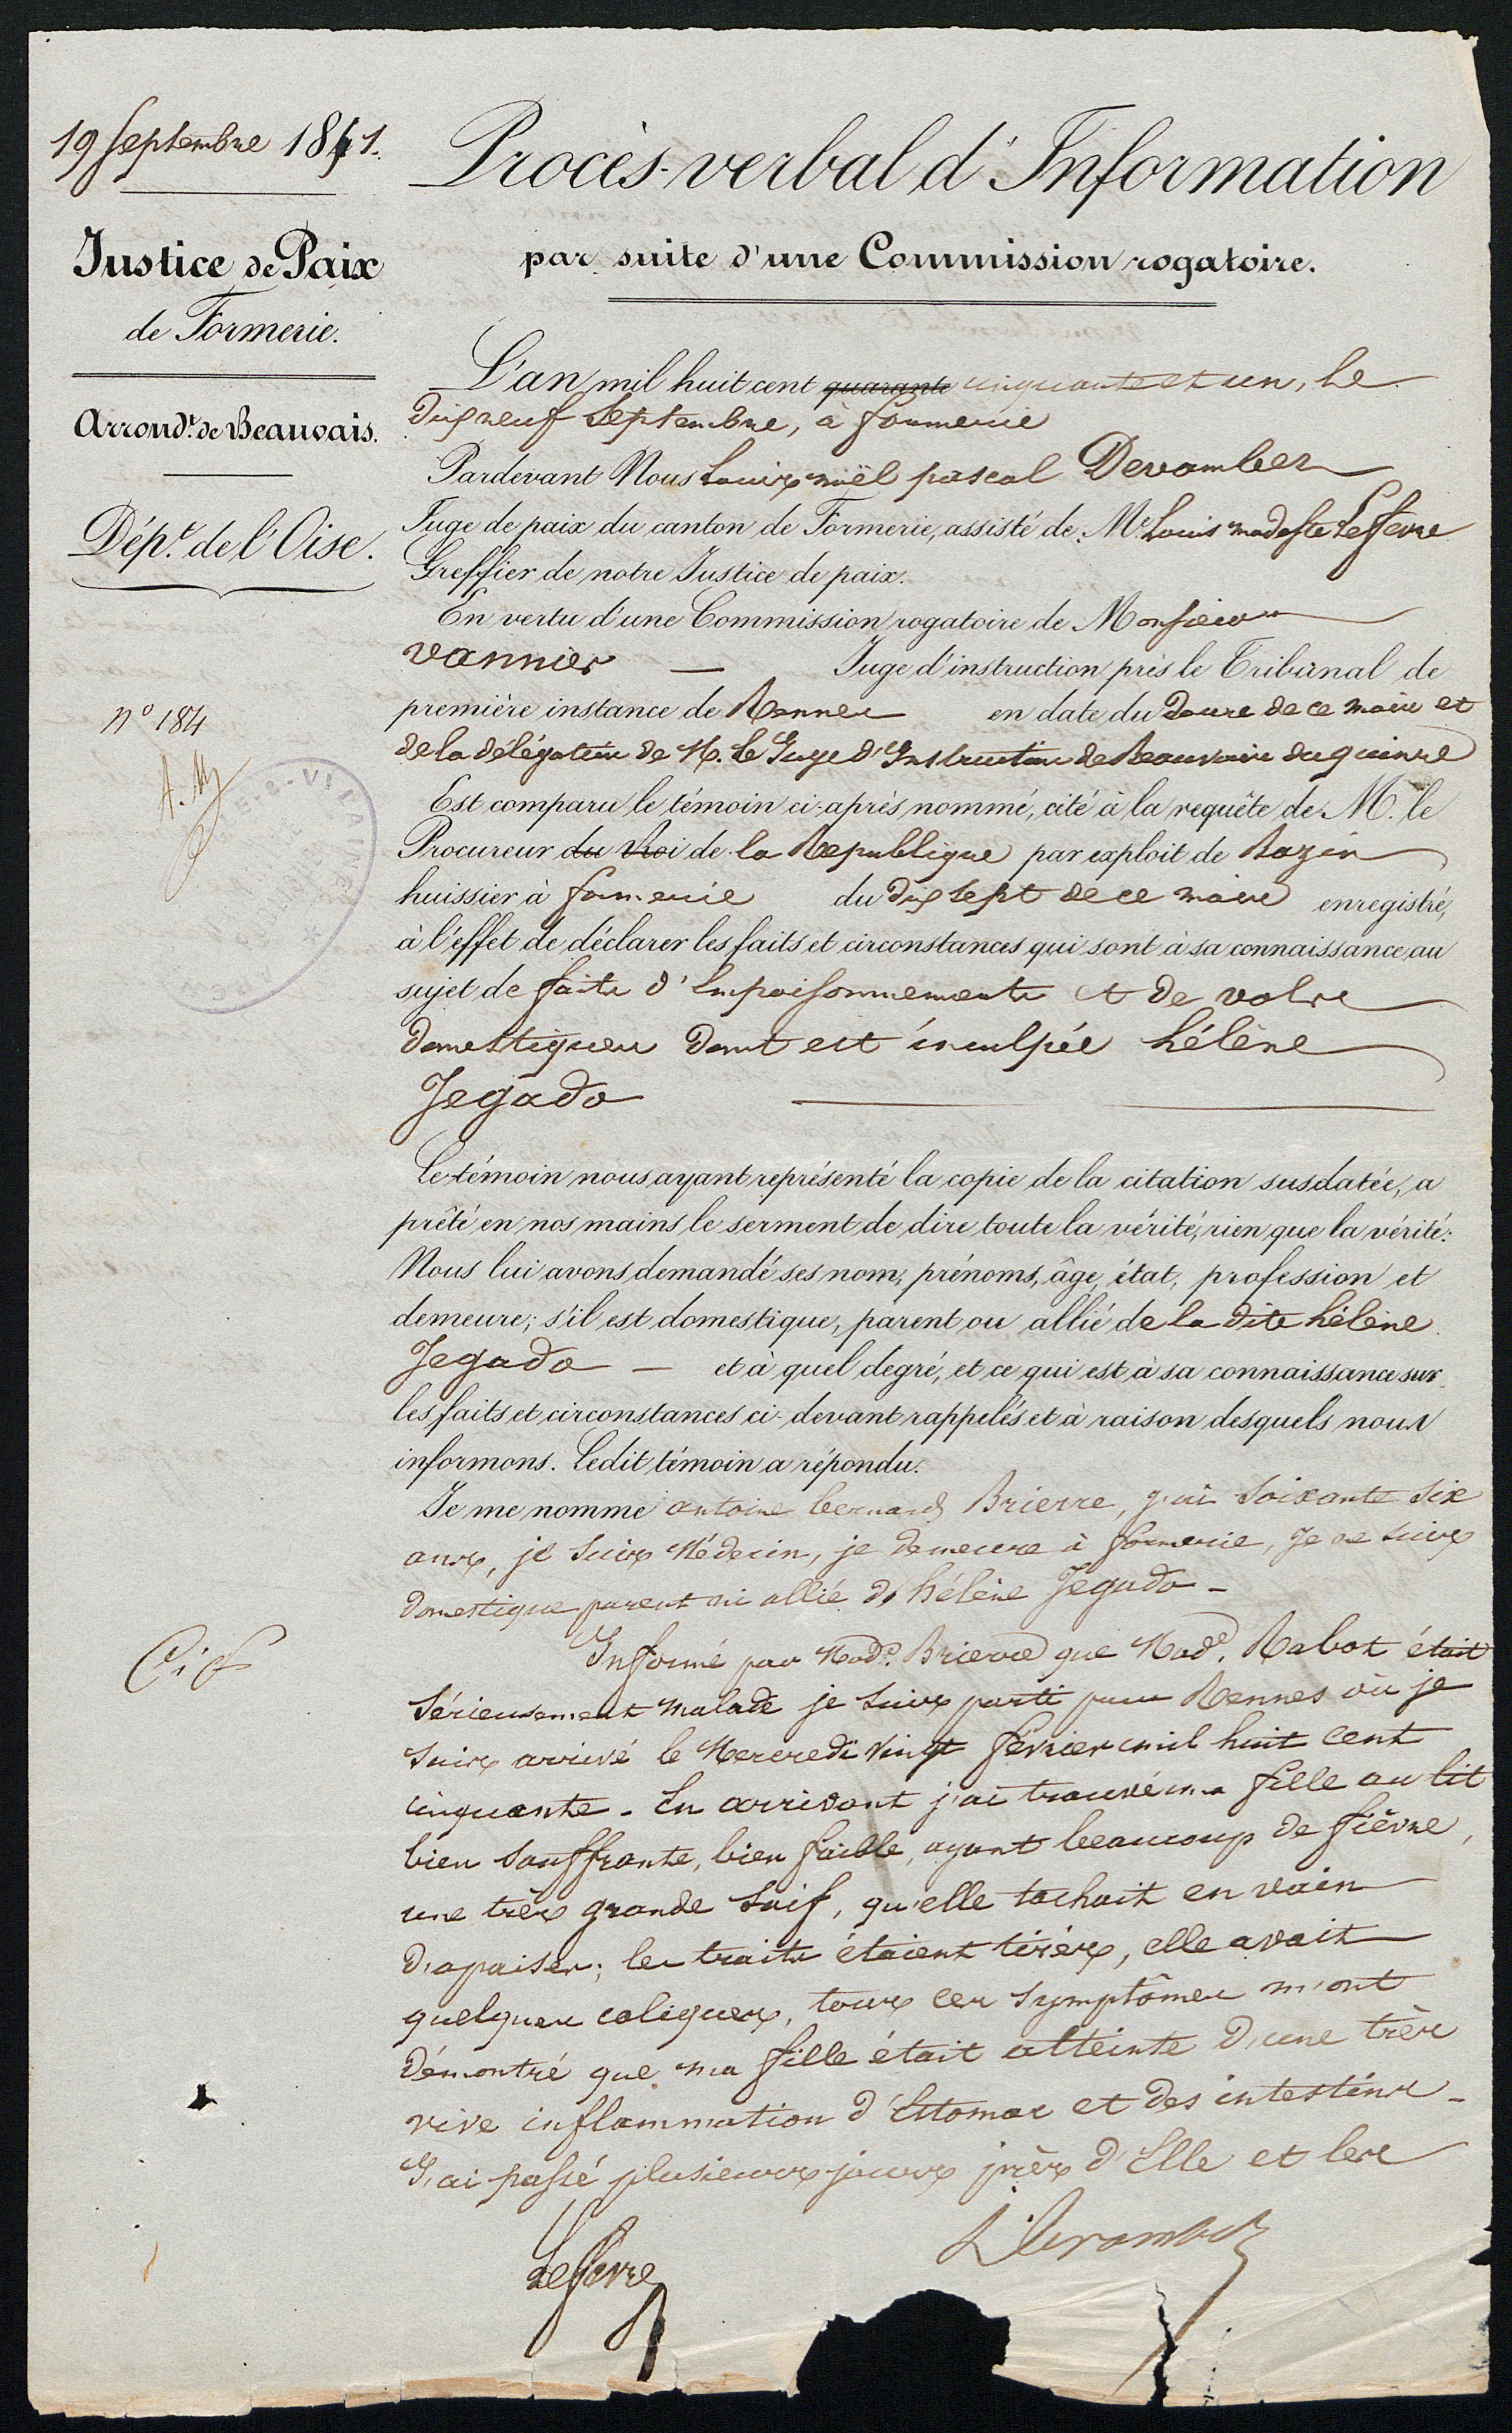 19 Septembre 1851.
Justice de Paix
de Formerie.
Arrond.t de Beauvais.
Dép.t de l'Oise.
n.o 184
Procès-verbal d'Information
par suite d'une Commission rogatoire.
L'an mil huit cent quarante cinquante et un, le
dix neuf Septembre, à formerie
Pardevant Nous Louis noël pascal Devambez
Juge de paix du canton de Formerie, assisté de M.e Louis modeste Lefevre
Greffier de notre Justice de paix.
En vertu d'une Commission rogatoire de Monsieur
vannier — Juge d'instruction près le Tribunal de
première instance de Rennes en date du douze de ce mois et
de la délégation de M. le Juge d'Instruction de Beauvais du quinze
Est comparu le témoin ci-après nommé, cité à la requête de M. le
Procureur du Roi de la République par exploit de Bazin
huissier à formerie du dix sept de ce mois enregistré,
à l'effet de déclarer les faits et circonstances qui sont à sa connaissance au
sujet de faits d'Empoisonnements et de vols
domestiques dont est inculpée hélène
Jegado
Le témoin nous ayant représenté la copie de la citation susdatée, a
prêté en nos mains le serment de dire toute la vérité, rien que la vérité:
Nous lui avons demandé ses nom, prénoms, âge, état, profession et
demeure; s'il est domestique, parent ou allié de la dite hélène
Jegado — et à quel degré, et ce qui est à sa connaissance sur
les faits et circonstances ci-devant rappelés et à raison desquels nous
informons. Ledit témoin a répondu.
Je me nomme antoine bernard Brierre, j'ai soixante six
ans, je suis Médecin, je demeure à formerie, Je ne suis
domestique parent ni allié de hélène Jegado -
Informé par Mad.e Brierre que Mad.e Rabot était
Sérieusement malade je suis parti pour Rennes où je
suis arrivé le Mercredi vingt février mil huit cent
cinquante - En arrivant j'ai trouvé ma fille au lit
bien souffrante, bien faible, ayant beaucoup de fièvre,
une très grande soif, qu'elle tachait en vain
d'apaiser; les traits étaient tirés, elle avait
quelques coliques, tous ces symptômes m'ont
démontré que ma fille était atteinte d'une très
vive inflammation d'Estomac et des intestins -
J'ai passé plusieurs jours près d'Elle et les
Lefevre
Devambez